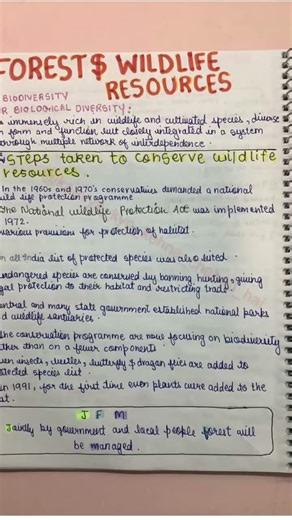 FOREST$ WILDLIFE
RESOURCES
BIODIVERSITY
R BIOLOGICAL DIVERSITY:
immensely rich in wildlife and cultivated species, diverse
form and function but closely integrated in a system
through multiple network of interdependence.
STEPS taken to conserve wildlife
resources.
In the 1960s and 1970's conservation demanded a national
wild life protection programme
The National wildlife Protection Act was implemented
1972.
various provisions for protection of habitat.
all India list of protected species was also listed.
ndangered species are conserved by banning hunting, giving
gal protection to their habitat and restricting trade.
entral and many state government established national parks
d wildlife santuaries.
he conservation programme are now focusing on biodiversity
ther than on a fewer components
ven insects, beetles, butterfly $ dragon flies are added to
otected species list.
n 1991, for the first time even plants were added to the
st.
J F M
Jointly by government and local people forest will
be managed.